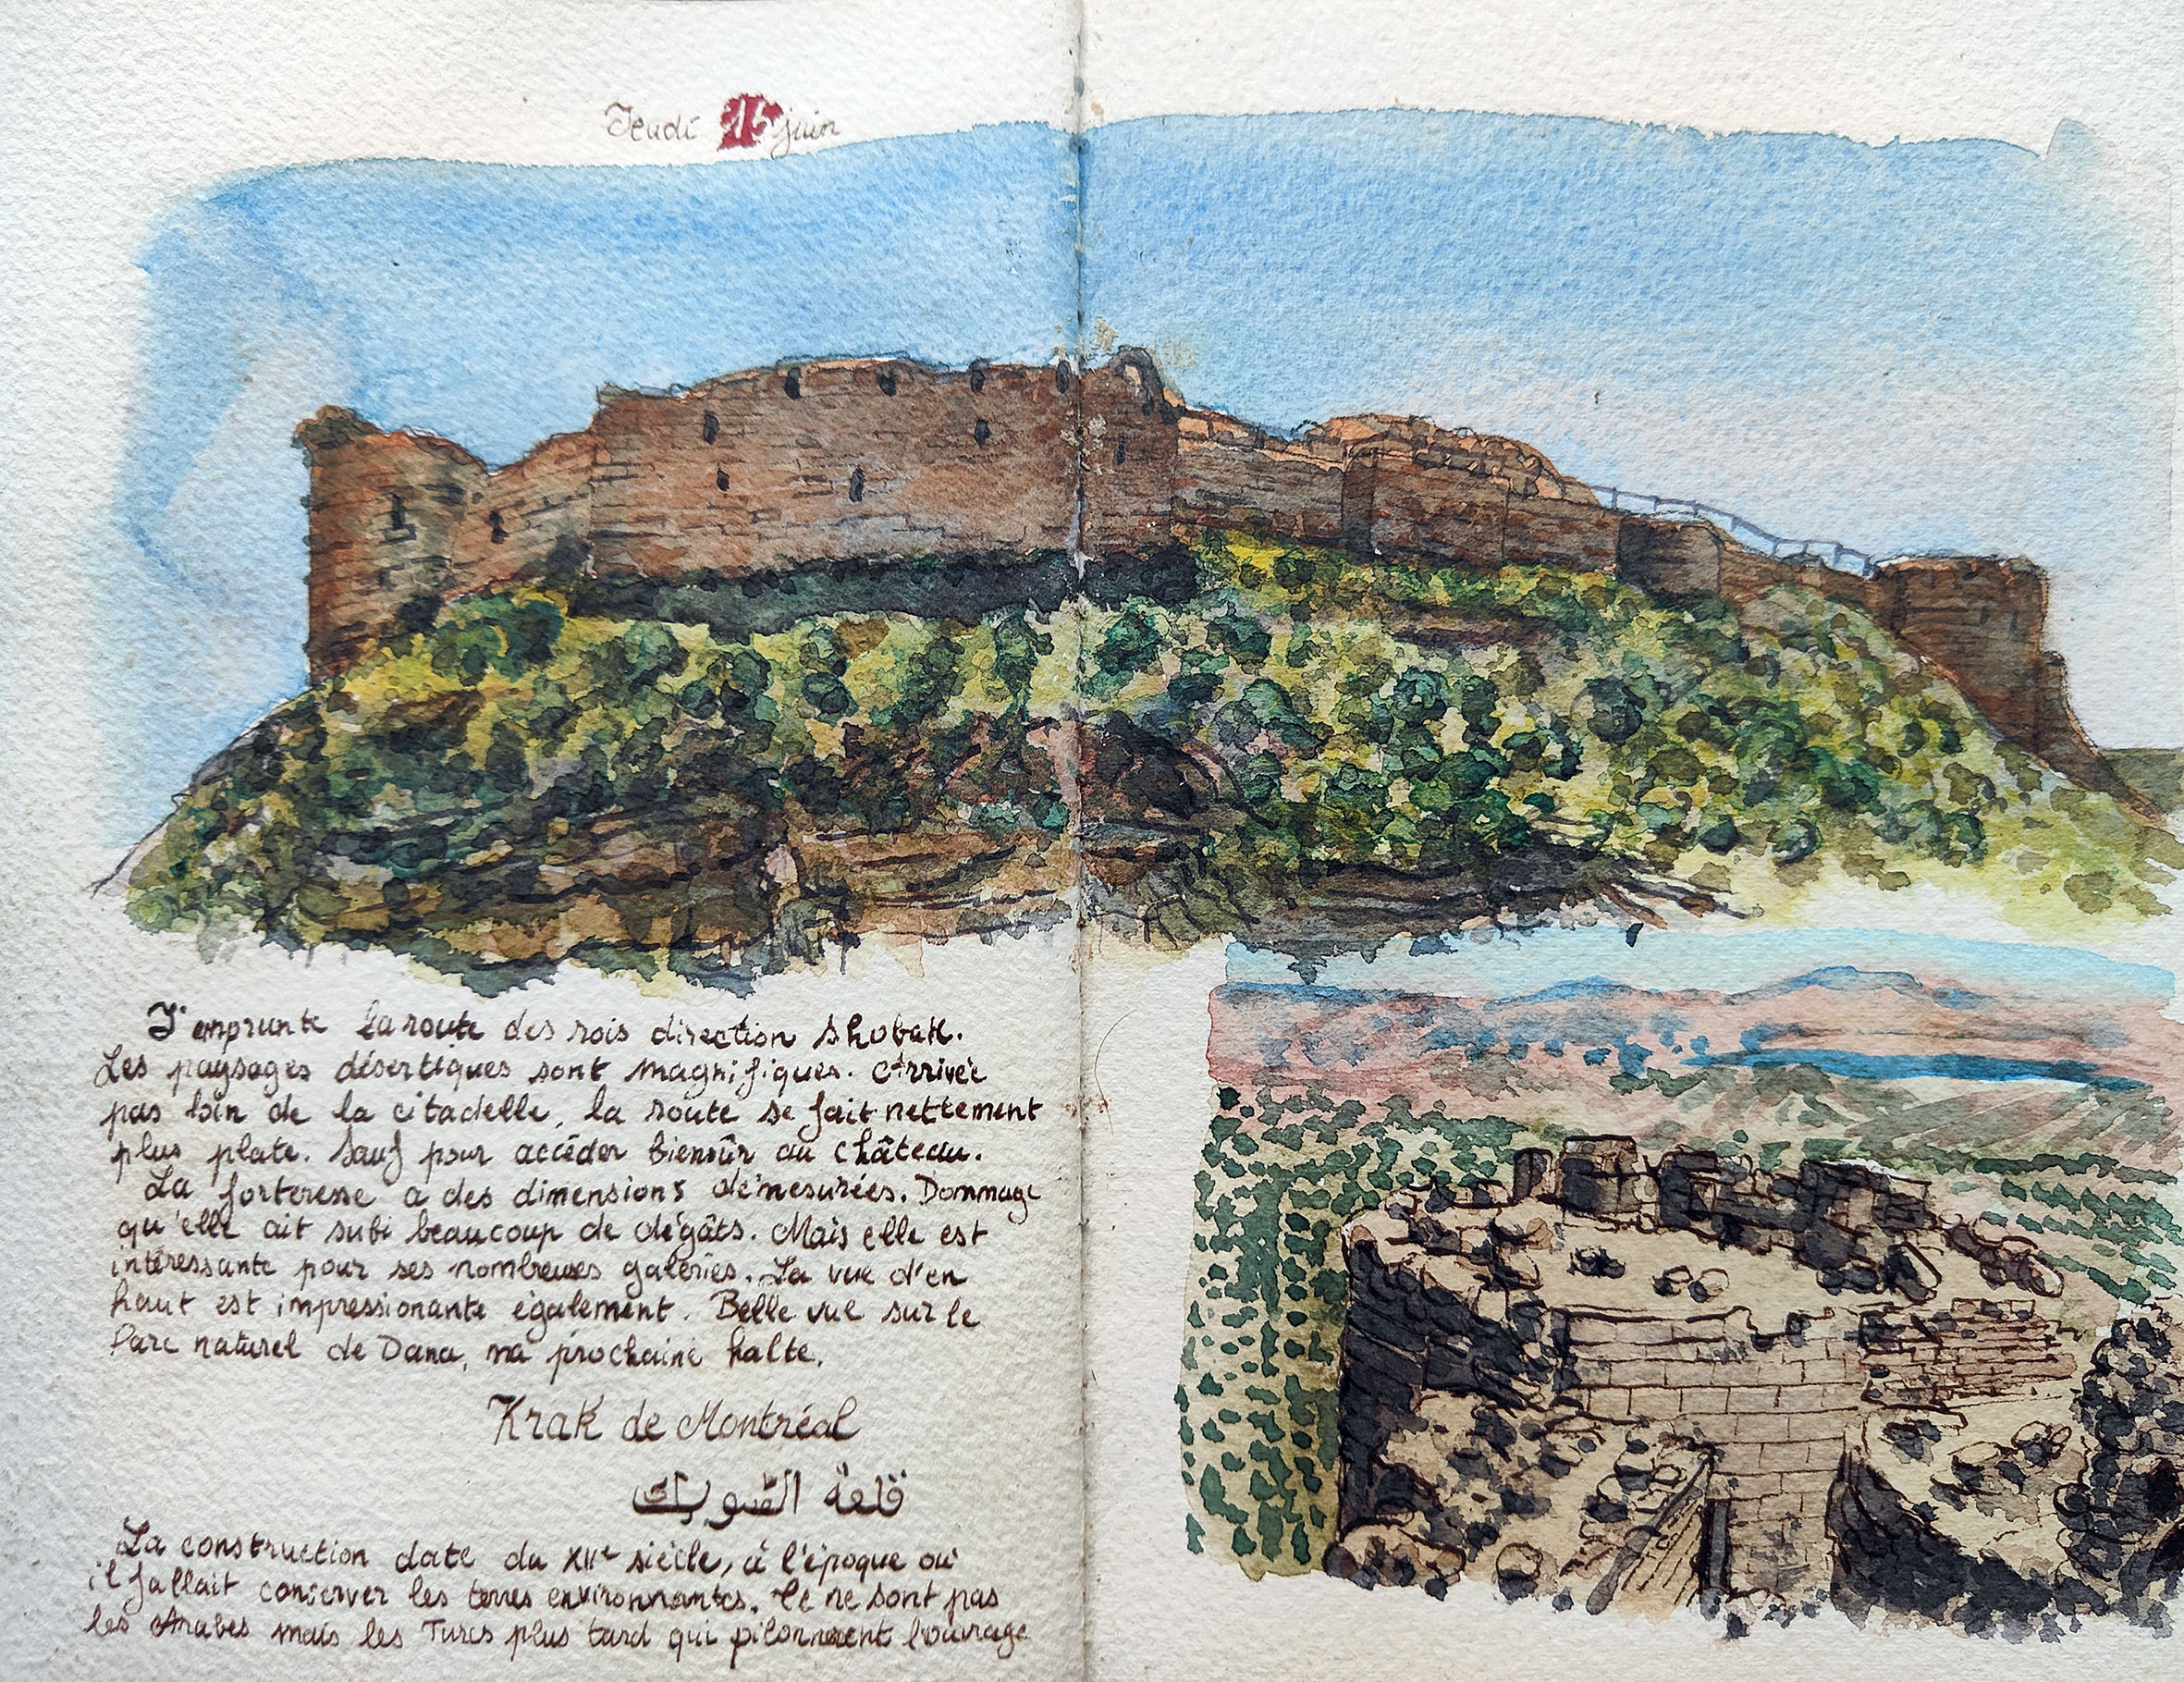 Jeudi 15 juin
J'emprunte la route des rois direction Shobak.
Les paysages désertiques sont magnifiques. Arrivée
pas loin de la citadelle, la route se fait nettement
plus plate. Sauf pour accéder biensûr au château.
La forteresse a des dimensions démesurées. Dommage
qu'elle ait subi beaucoup de dégâts. Mais elle est
intéressante pour ses nombreuses galeries. La vue d'en
haut est impressionante également. Belle vue sur le
Parc naturel de Dana, ma prochaine halte.
Krak de Montréal
قلعة الشوبك
La construction date du XIIe siècle, à l'époque où
il fallait concerver les terres environnantes. Ce ne sont pas
les Arabes mais les Turcs plus tard qui pilonnèrent l'ouvrage